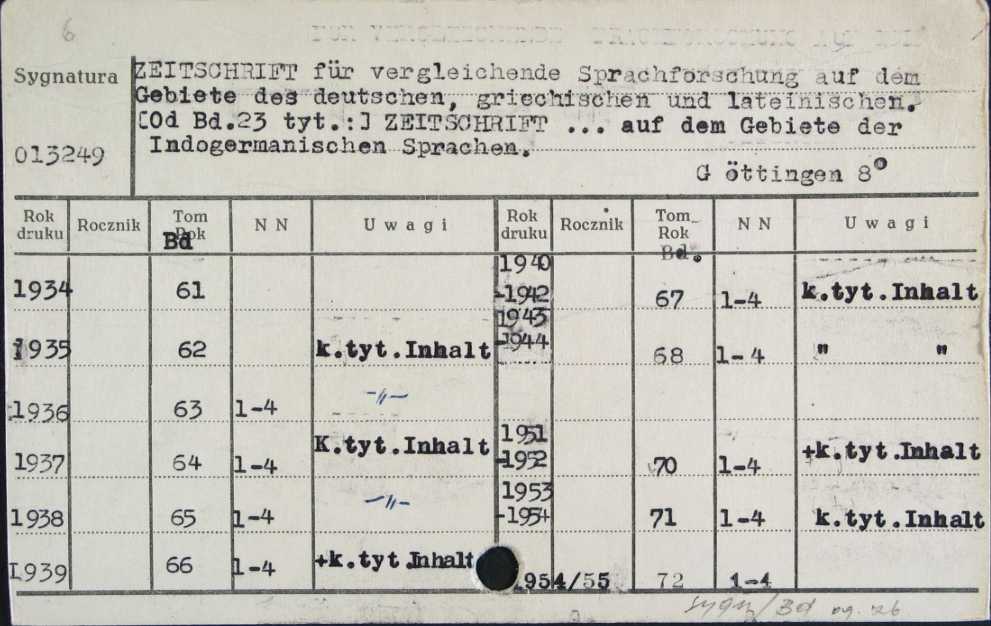 6
Sygnatura
ZEITSCHRIFT für vergleichende Sprachforschung auf dem
Gebiete des deutschen, griechischen und lateinischen.
[Od Bd.23 tyt.:] ZEITSCHRIFT ... auf dem Gebiete der
Indogermanischen Sprachen.
013249
G öttingen 8°
Rok druku Rocznik Tom Rok Bd N N Uwagi Rok druku Rocznik Tom Rok Bd. N N Uwagi
1934 61
1940-1942 67 1-4 k.tyt.Inhalt
1935 62 k.tyt.Inhalt
1943-1944 68 1-4 " "
1936 63 1-4 -//-
1937 64 1-4 K.tyt.Inhalt
1951-1952 70 1-4 +k.tyt.Inhalt
1938 65 1-4 -//-
1953-1954 71 1-4 k.tyt.Inhalt
1939 66 1-4 +k.tyt.Inhalt
1954/55 72 1-4
Bd